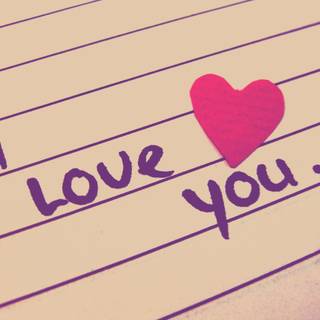 I LOVE
you.